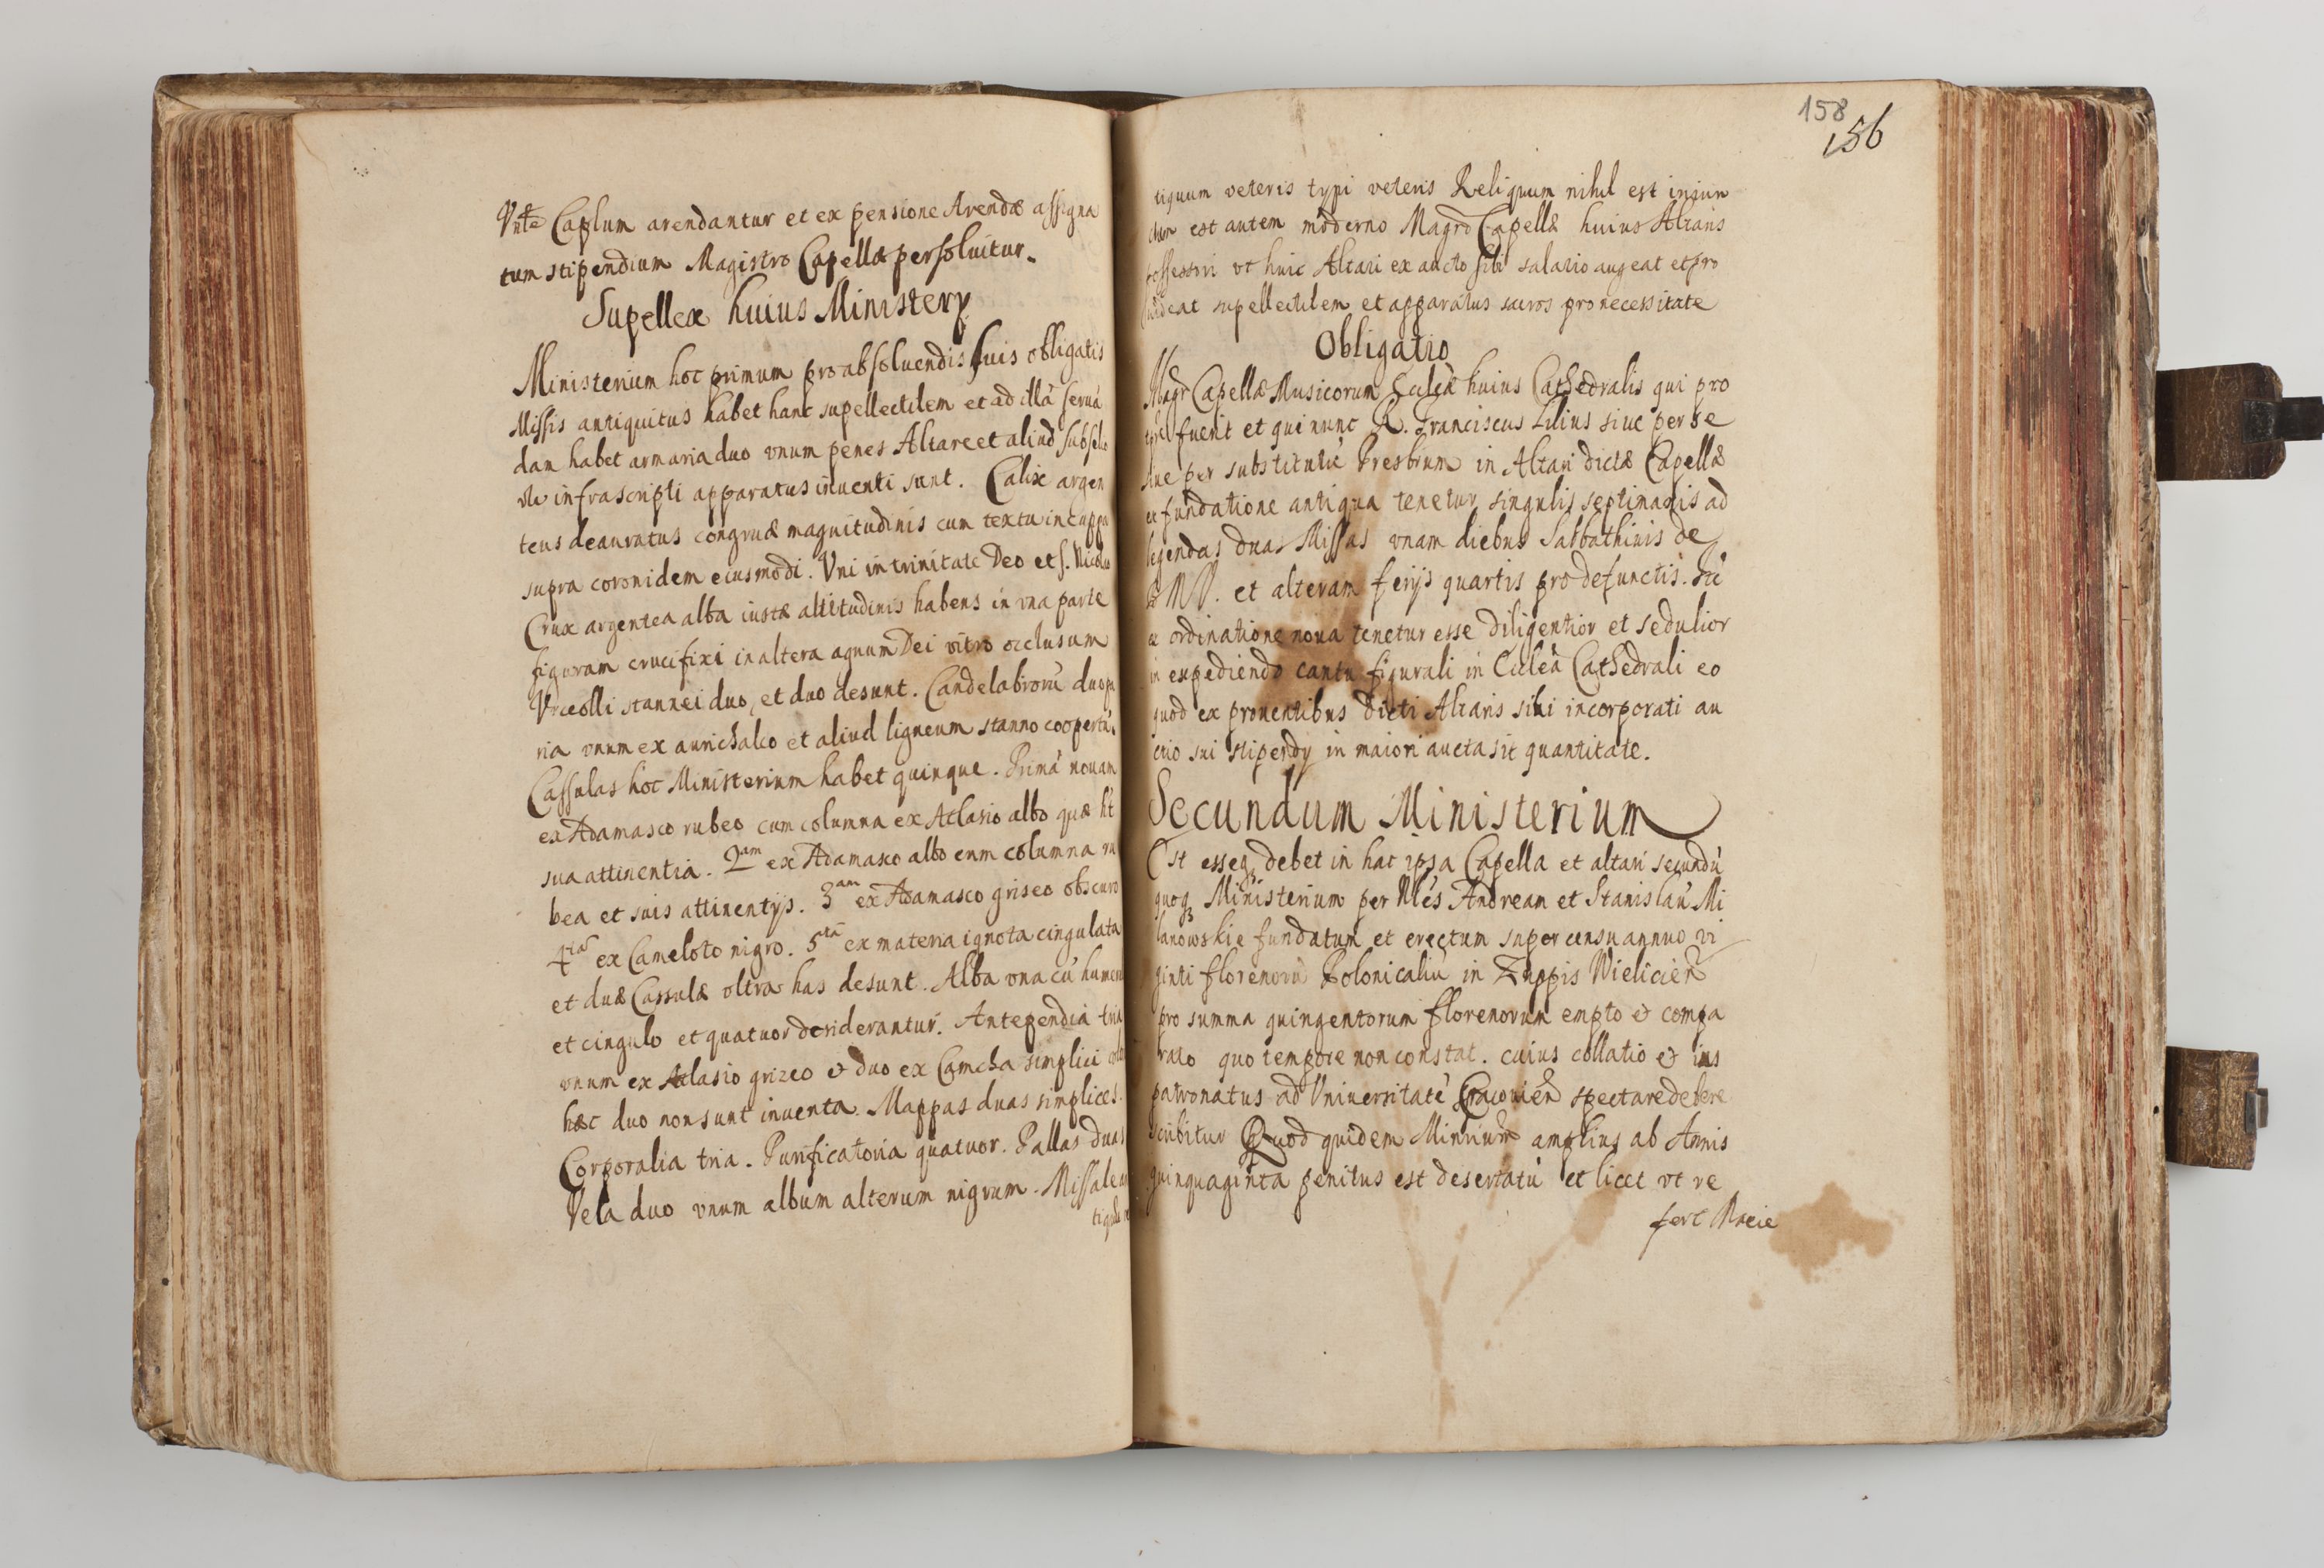 Vnle Caplum arendantur et ex pensione Arendæ assigna
tum stipendium Magistro Capellæ persoluitur.
Supellex huius Ministery
Ministerium hoc primum pro absoluendis suis obligatis
Missis antiquitus habet hanc supellectilem et ad illã seruã
dam habet armaria duo vnum penes Altare et aliud
infrascripti apparatus inuenti sunt. Calix argen
teus deauratus congruæ magnitudinis cum textu in cuppa
supra coronidem eiusmodi. Vni in trinitate Deo et S. Nicolao
Crux argentea alba iustæ altitudinis habens in vna parte
figuram crucifixi in altera agnum Dei vitro occlusum
Vrceolli stannei duo, et duo desunt. Candelabrorũ duo pa
ria vnum ex aurichalco et aliud ligneum stanno coopertũ.
Cassulas hoc Ministerium habet quinque. Primã nouam
ex Adamasco rubeo cum columna ex Atlasio albo quæ ht
sua attinentia. 2am ex Adamasco albo cum columna ru
bea et suis attinentijs. 3am ex Adamasco griseo obscuro
4tã ex Cameloto nigro. 5tã ex materia ignota cingulata
et duæ Cassulæ vltra has desunt. Alba vna cũ
et cingulo et quatuor desiderantur. Antependia tria
vnum ex Atlasio grizeo & duo ex Camcha simplici
hæc duo non sunt inuenta. Mappas duas simplices.
Corporalia tria. Purificatoria quatuor. Pallas duas
Vela duo vnum album alterum nigrum. Missale an
158
156
tiquum veteris typi veteris Reliquum nihil est iniun
ctum est autem moderno Magrõ Capellæ huius Altaris
possessori vt huic Altari ex aucto sibi salario augeat et pro
uideat supellectilem et apparatus sacros pro necessitate
Obligatio
Magr Capellæ Musicorum Eccleæ huius Cathedralis qui pro
tpre fuerit et qui nunc R. Franciscus Lilius siue per se
siue per substitutũ Presbrum in Altari dictæ Capellæ
ex fundatione antiqua tenetur singulis septimanis ad
legendas duas Missas vnam diebus Sabbathinis de
et alteram ferijs quartis pro defunctis.
ex ordinatione noua tenetur esse diligentior et sedulior
in expediendo cantu figurali in Ecclea Cathedrali eo
quod ex prouentibus dicti Altaris sibi incorporati au
ctio sui stipendy in maiori aucta sit quantitate.
Secundum Ministerium
Est esseq3 debet in hac ipsa Capella et altari secundũ
quoq3 Ministerium per Nles Andream et Stanislaũ Mi
lanowskie fundatum et erectum super censu annuo vi
ginti florenorũ Polonicaliũ in Zuppis Wielicien
pro summa quingentorum florenorum empto & compa
rato quo tempore non constat. cuius collatio & ius
patronatus ad Vniuersitatẽ Cracouien spectare debere
scribitur Quod quidem Minrium amplius ab Annis
quinquaginta penitus est desertatũ et licet vt re